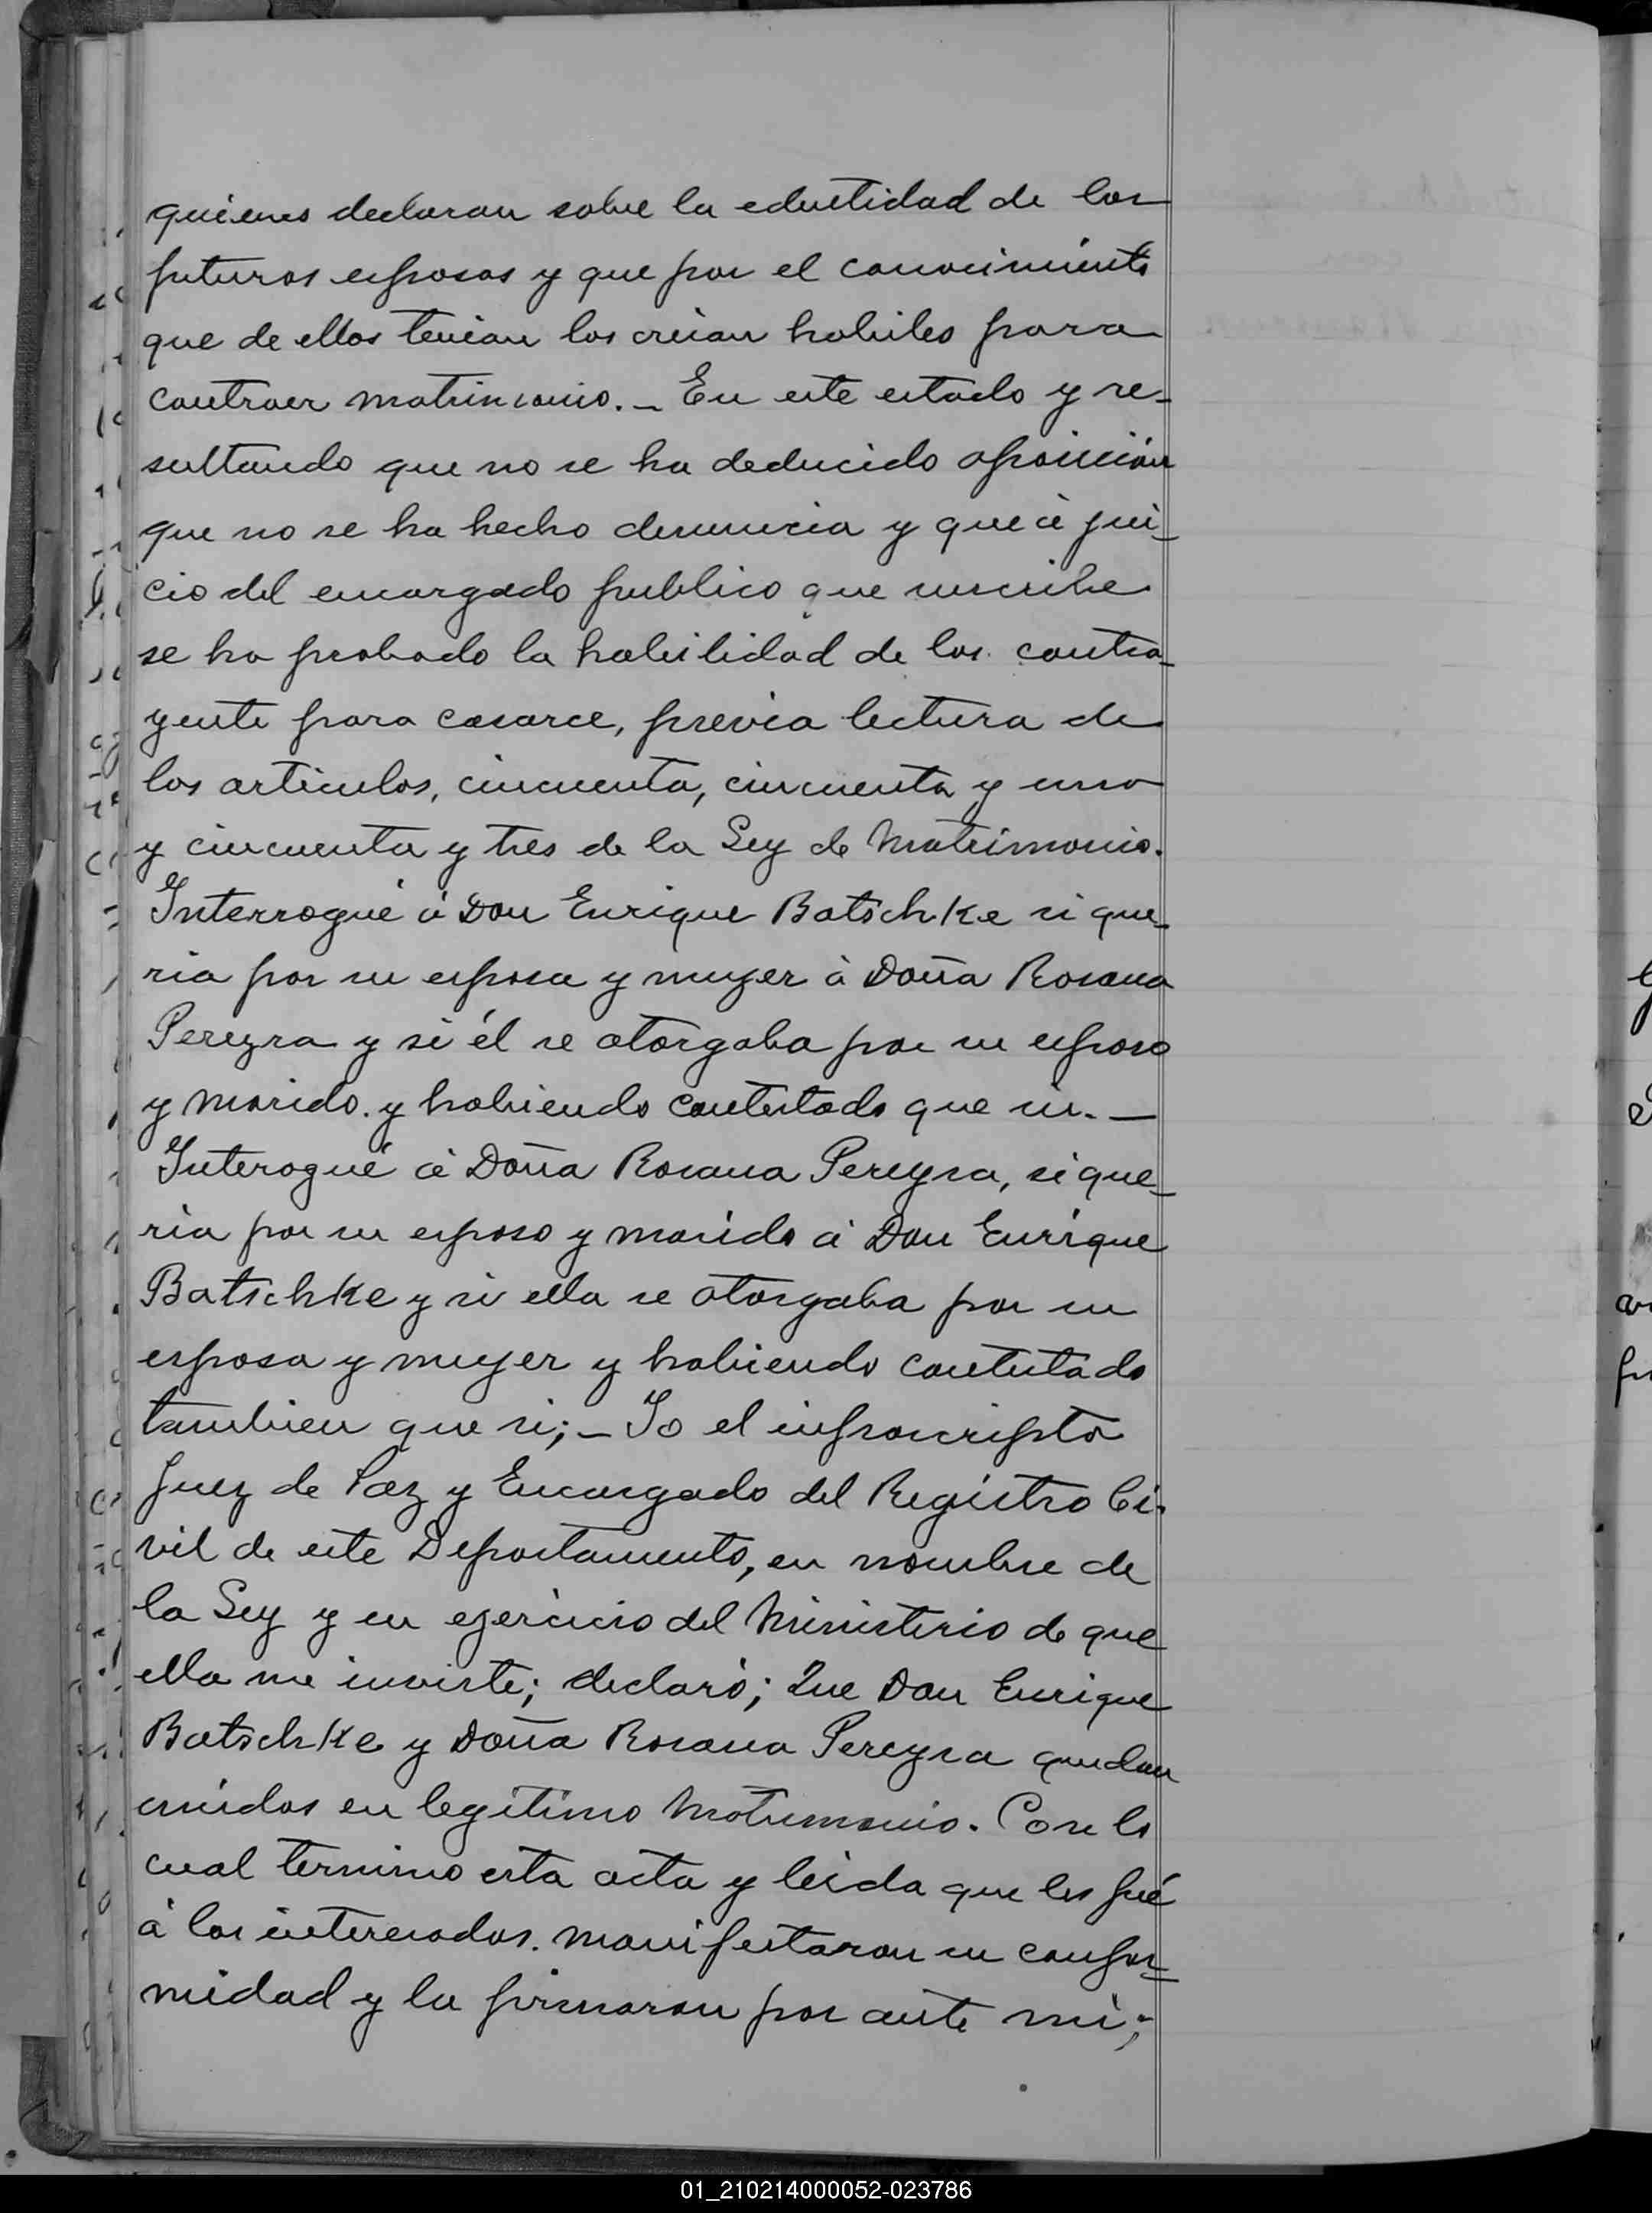 quienes declaran sobre la edentidad de los
futuros esposos y que por el conocimiento
que de ellos tenian los creian habiles para
contraer matrimonio. _ En este estado y re_
sultando que no se ha deducido oposición
que no se ha hecho denuncia y que á jui_
cio del encargado publico que suscribe
se ha probado la habilidad de los contra_
yente para casarce, previa lectura de
los articulos, cincuenta, cincuenta y uno
y cincuenta y tres de la Ley de Matrimonio.
Interrogué á Don Enrique Batschke si que_
ria por su esposa y muger á Doña Rosana
Pereyra y si él se otorgaba por su esposo
y marido. y habiendo contestado que si. _
Interogué á Doña Rosana Pereyra, si que_
ria por su esposo y marido á Don Enrique
Batschke y si ella se otorgaba por su
esposa y muger y habiendo contestado
tambien que si; _ Yo el infrascripto
Juez de Paz y Encargado del Registro Ci.
vil de este Departamento, en nombre de
la Ley y en egercicio del Ministerio de que
ella me inviste; declaró; Que Don Enrique
Batschke y Doña Rosana Pereyra quedan
unidos en legitimo Matrimonio. Con lo
cual termino esta acta y leida que les fué
á los interesados. manifestaron su confor_
midad y la firmaron por ante mi;
01_210214000052-023786